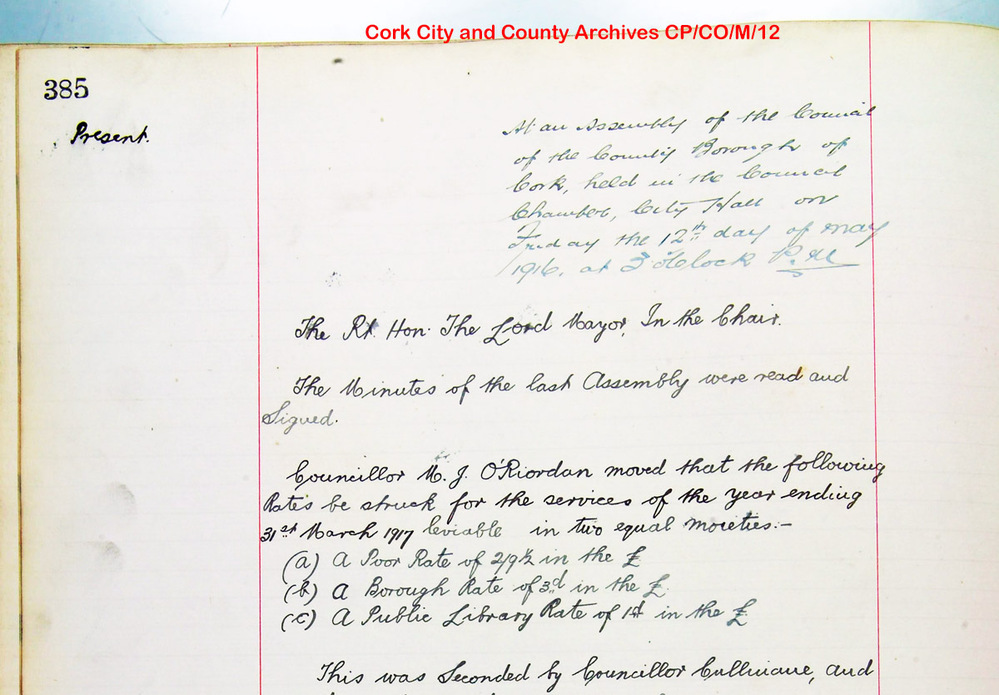 Cork City and County Archives CP/CO/M/12
385
Present.
At an Assembly of the Council
of the County Borough of
Cork, held in the Council
Chamber, City Hall on
Friday the 12th day of May
1916, at 3 o'Clock P.M
The Rt. Hon. The Lord Mayor, In the Chair.
The Minutes of the last Assembly were read and
Signed.
Councillor M. J. O'Riordan moved that the following
Rates be struck for the services of the year ending
31st March 1917 leviable in two equal moieties:-
(a) A Poor Rate of 2/9½ in the £
(b) A Borough Rate of 3d in the £
(c) A Public Library Rate of 1d in the £
This was Seconded by Councillor Cullinane, and